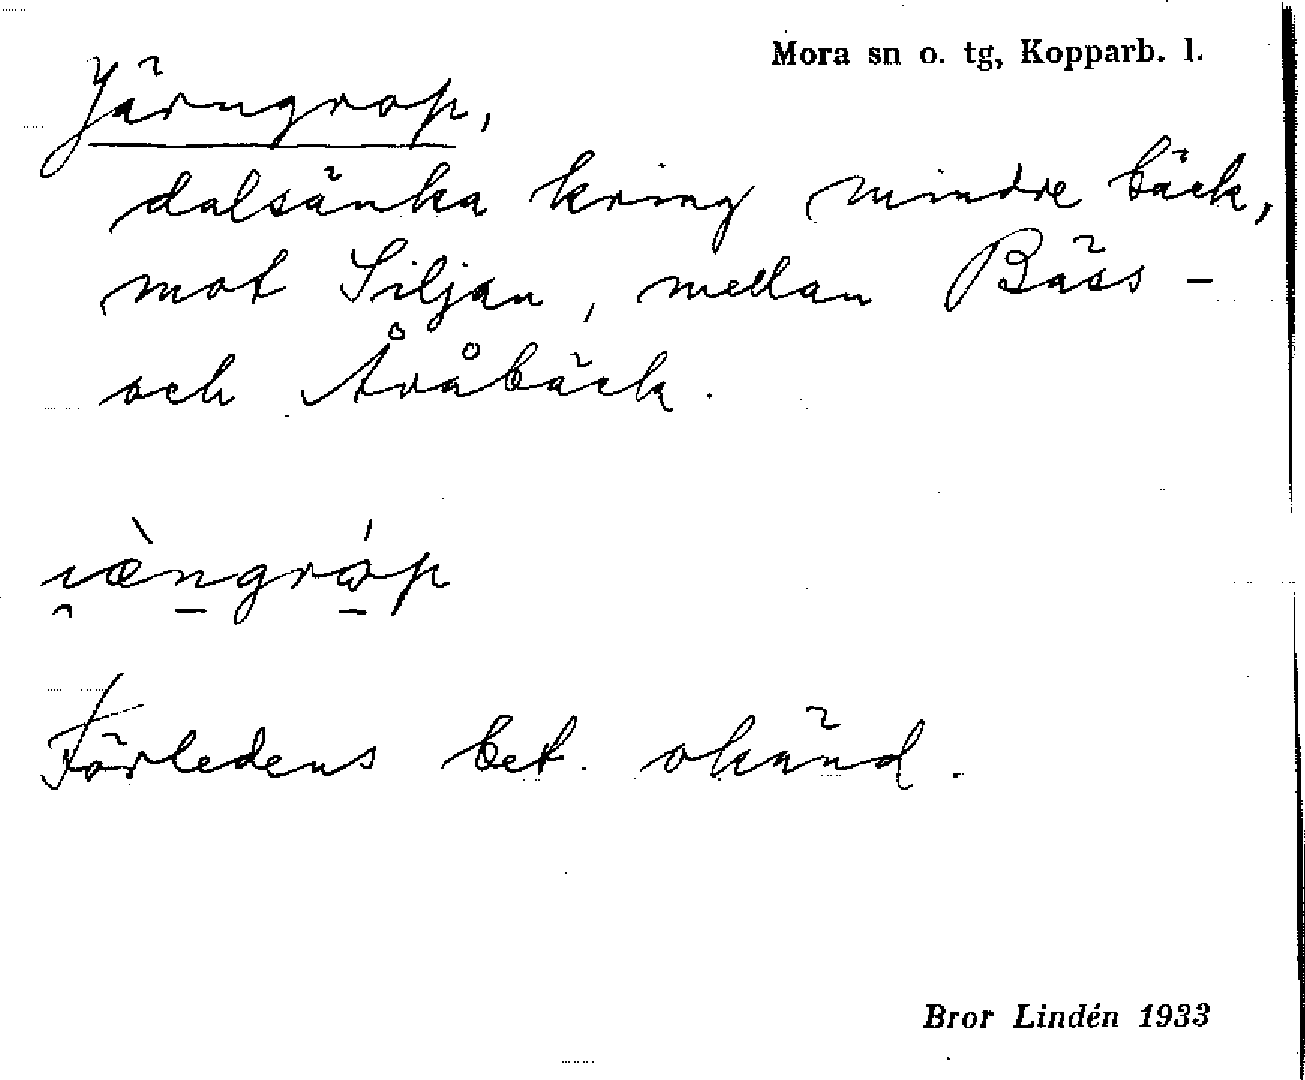 Mora sn o. tg, Kopparb. l.
Järngrop,
dalsänka kring mindre bäck,
mot Siljan, mellan Bäss-
och Åråbäck.
Förledens bet. okänd.
Bror Lindén 1933